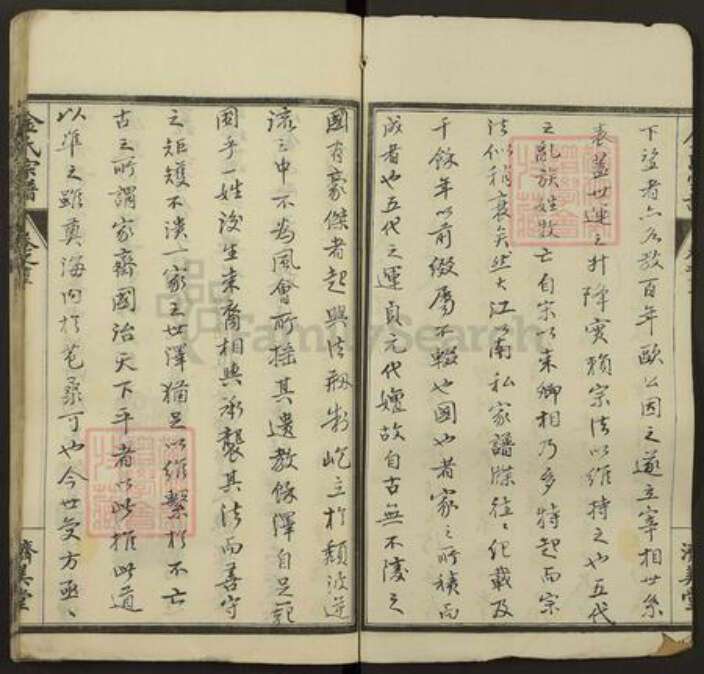 下望者六名數百年歐公因之遂立宰相世系
表蓋世運之升降實賴宗法以維持之也五代
之亂族姓散亡自宋以來卿相乃多特起而宗
法似稍衰矣然大江以南私家譜牒往往紀載及
千餘年以前綴屬不輟也國也者家之所積而
成者也五代之運貞元代嬗故自古無不淩之
國有豪傑者起與法剏制屹立於頹波逆
流之中不為風會所搖其遺教餘澤自足範
圍乎一姓後生末裔相與承襲其法而善守
之矩矱不潰一家之世澤猶足以維繫於不亡
古之所謂家齊國治天下平者以此推此道
以準之雖奠海內於苞桑可也今世變方亟亟
金氏宗譜
濟美堂
FamilySearch